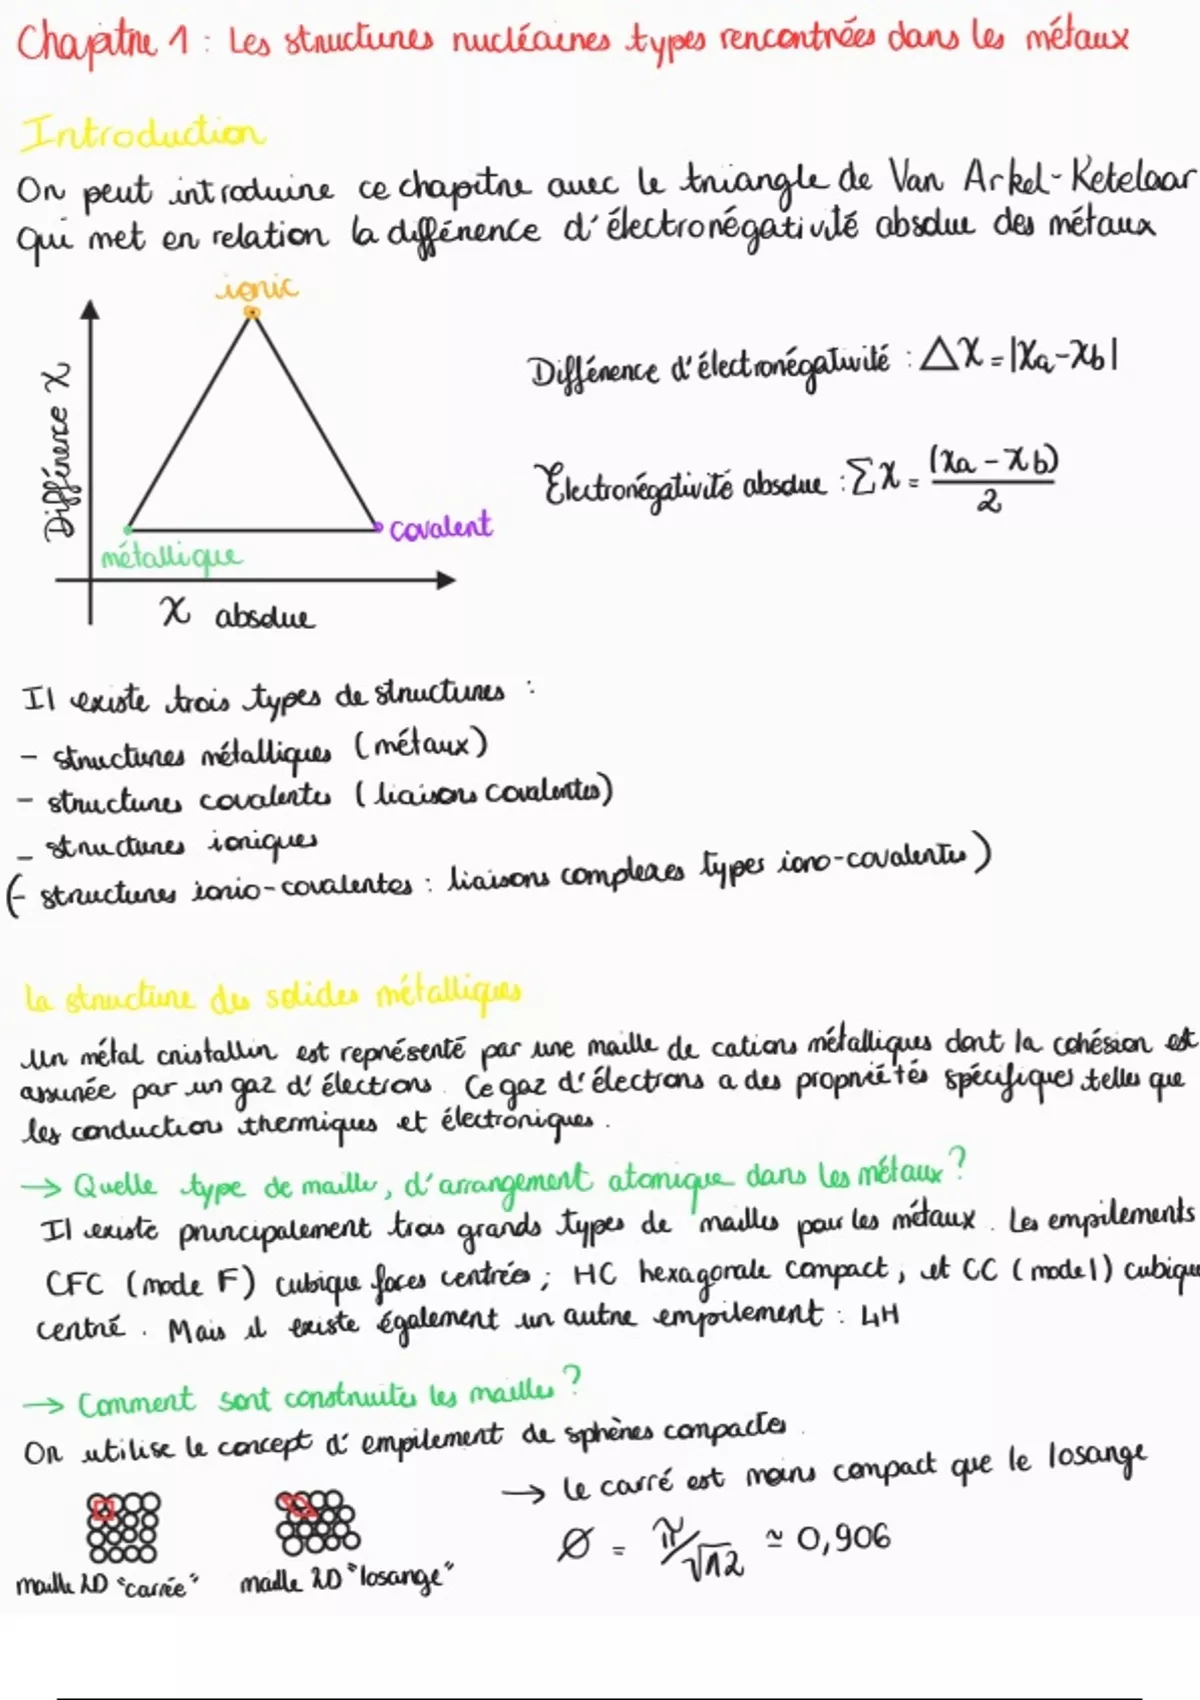 Chapitre 1 : Les structures nucléaires types rencontrées dans les métaux
Introduction
On peut introduire ce chapitre avec le triangle de Van Arkel-Ketelaar
qui met en relation la différence d'électronégativité absolue des métaux
ionic
Différence χ
métallique
covalent
χ absolue
Différence d'électronégativité : Δχ = |χa-χb|
Électronégativité absolue : Σχ = (χa - χb)/2
Il existe trois types de structures :
- structures métalliques (métaux)
- structures covalentes (liaisons covalentes)
- structures ioniques
(- structures ionio-covalentes : liaisons complexes types iono-covalentes)
La structure des solides métalliques
Un métal cristallin est représenté par une maille de cations métalliques dont la cohésion est
assurée par un gaz d'électrons. Ce gaz d'électrons a des propriétés spécifiques telles que
les conductions thermiques et électroniques.
→ Quelle type de mailles, d'arrangement atomique dans les métaux ?
Il existe principalement trois grands types de mailles pour les métaux. Les empilements
CFC (mode F) cubique faces centrées ; HC hexagonale compact, et CC (mode I) cubique
centré. Mais il existe également un autre empilement : 4H
→ Comment sont construites les mailles ?
On utilise le concept d'empilement de sphères compactes.
maille 2D "carrée"
maille 2D "losange"
→ le carré est moins compact que le losange
Ø = π/√12 ≃ 0,906